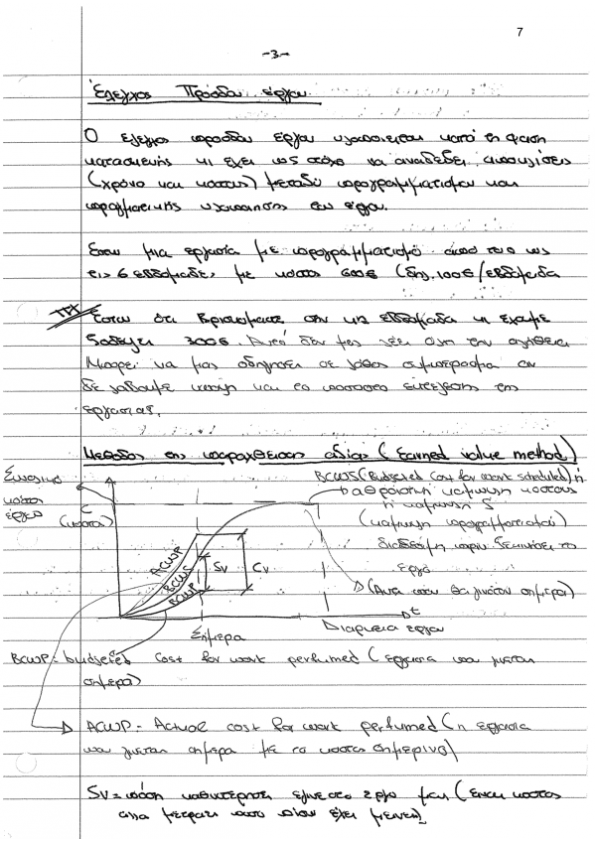 7
-3-
Έλεγχος Προόδου έργου
Ο έλεγχος προόδου έργου υλοποιείται κατά τη φάση
κατασκευής κι έχει ως στόχο να αναδείξει αποκλίσεις
(χρόνο και κόστους) μεταξύ προγραμματισμού και
πραγματικής υλοποίησης του έργου.
Έστω μια εργασία με προγραμματισμό από τις ως
τις 6 εβδομάδες με κόστος 600€ (δηλ. 100€/εβδομάδα
ΠΧ Έστω ότι βρισκόμαστε στην εβδομάδα κι έχουμε
ξοδέψει 300€. Αυτό δεν μας λέει όλη την αλήθεια
Μπορεί να μας οδηγήσει σε λάθος συμπέρασμα αν
δε λάβουμε υπόψη και το ποσοστό εκτέλεσης της
εργασίας.
Μέθοδος της αξίας (Earned value method)
Συνολικό
κόστος
έργου
C
(κόστος)
BCWS (Budgeted Cost for work scheduled) ή
αθροιστική καμπύλη κόστους
ή καμπύλη S
(καμπύλη προγραμματισμού)
διαθέσιμη πριν ξεκινήσει το
έργο
ACWP
BCWS
BCWP
SV
CV
(Αυτά που θα γινόταν σήμερα)
t
Σήμερα
Διάρκεια έργου
BCWP = budgeted cost for work perfumed (εργασία που γινεται
σημερα)
ACWP = Actual cost for work perfumed (η εργασία
που γινεται σημερα με το κοστος σημερινο)
SV = πόση καθυστέρηση έγινε στο έργο μας (ειναι κοστος
αλλα μετραει ποσο πισω έχει μεινει)